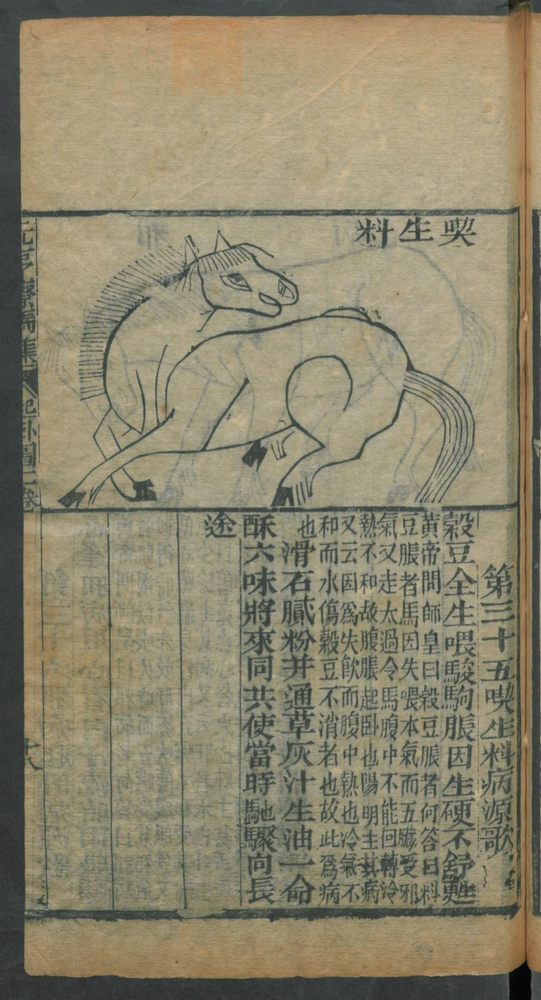 喫生料
第三十五喫生料病源歌
穀豆全生喂駿駒脹因生硬不舒甦
黃帝問師皇曰穀豆脹者何答曰料
豆脹者馬因失喂本氣而五臟受邪
氣又走太過令馬腹中不能回轉冷
熱不和故腹脹起卧也陽明生其病
又云因爲失飲而腹中熱也冷氣不
和而水傷穀豆不消者也故此爲病
也
滑石膩粉并通草灰汁生油一命
酥六味將來同共使當時馳驟向長
途
元亨療馬集
起卧圖一卷
十八